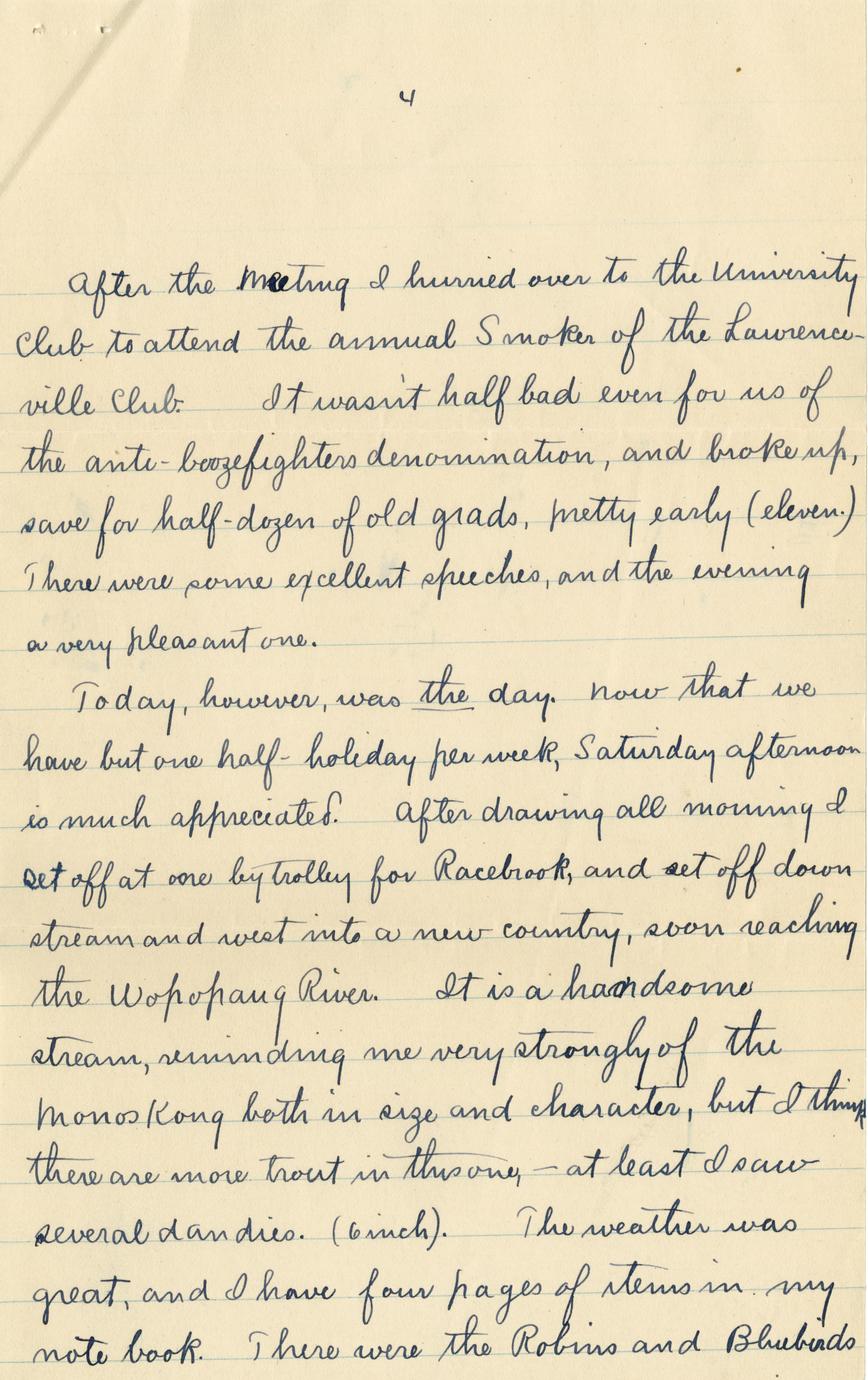 4
After the Meeting I hurried over to the University
Club to attend the annual Smoker of the Lawrence-
ville Club. It wasn't half bad even for us of
the anti-boozefighters denomination, and broke up,
save for half-dozen of old grads, pretty early (eleven.)
There were some excellent speeches, and the evening
a very pleasant one.
Today, however, was the day. Now that we
have but one half-holiday per week, Saturday afternoon
is much appreciated. After drawing all morning I
set off at one by trolley for Racebrook, and set off down
stream and west into a new country, soon reaching
the Wopopaug River. It is a handsome
stream, reminding me very strongly of the
Monos Kong both in size and character, but I think
there are more trout in this one, — at least I saw
several dandies. (6 inch). The weather was
great, and I have four pages of items in my
note book. There were the Robins and Bluebirds